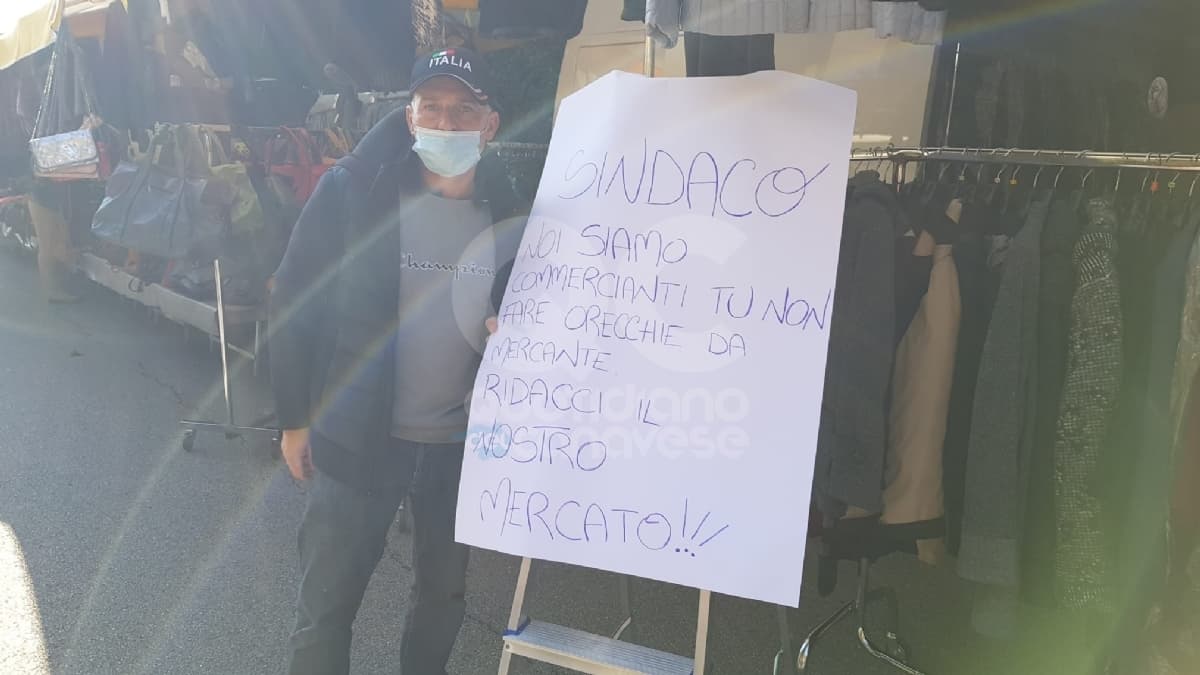 ITALIA
Champion
SINDACO
NOI SIAMO
COMMERCIANTI TU NON
FARE ORECCHIE DA
MERCANTE.
RIDACCI IL
NOSTRO
MERCATO!!!
QC
Quotidiano
Canavese